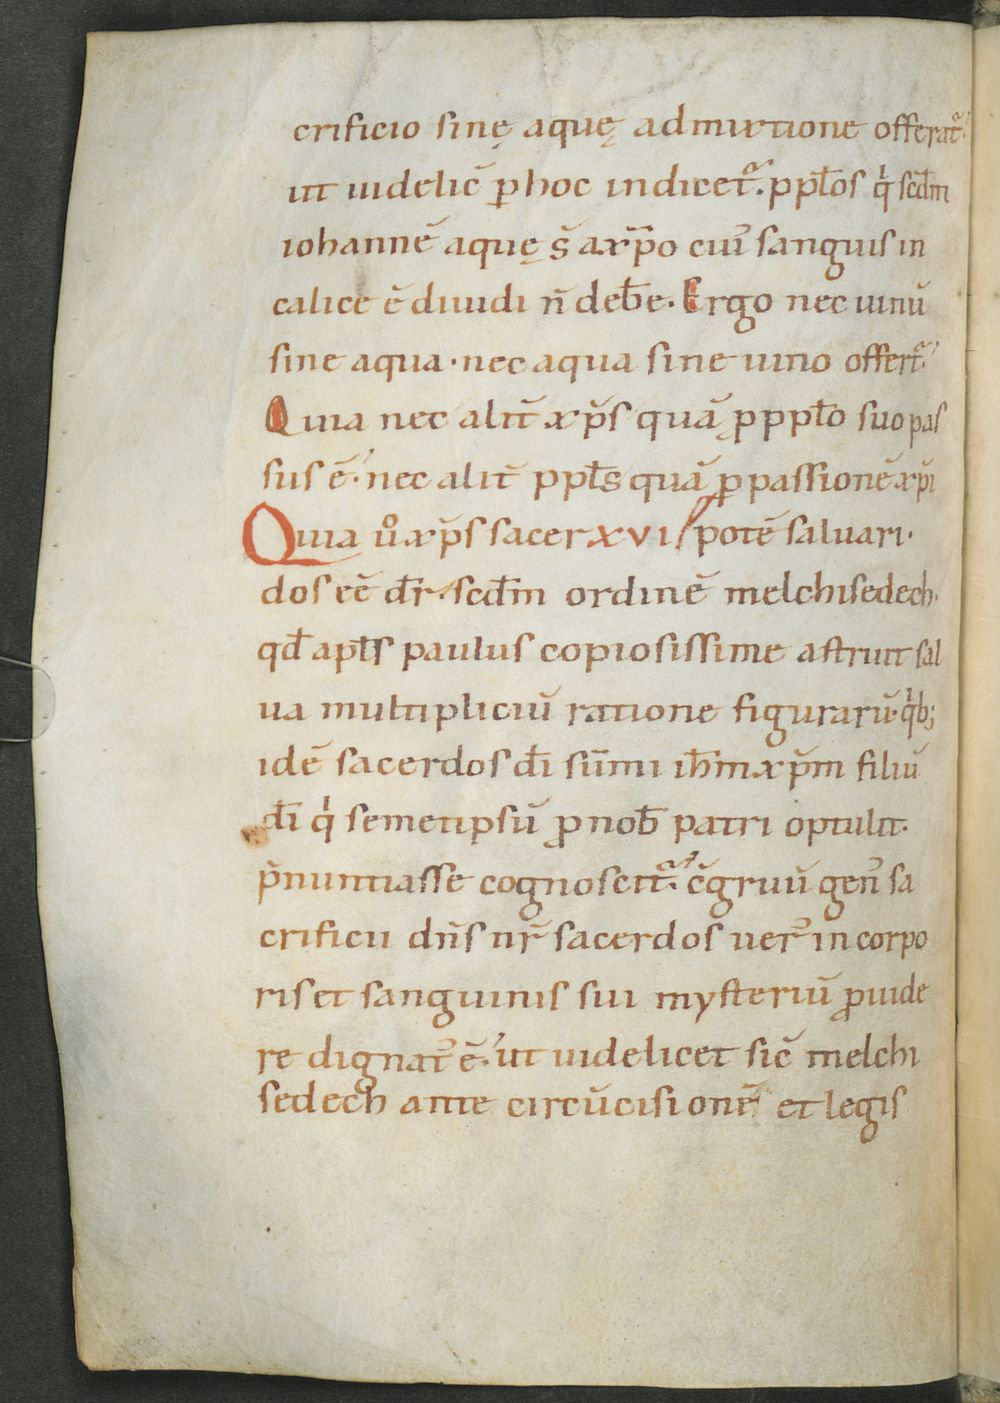 crificio sinę aquę admixtione offerat᷑.
ut uidelic̄ ꝑ hoc indicet᷑. ppl̄os q̇ scd̄m
iohannē aquę s̄ a xp̄o cui᷒ sanguis in
calice ē diuidi n̄ deb̄e. Ergo nec uinū
sine aqua. nec aqua sine uino offert᷑.
Quia nec alit̄ xp̄s quā ꝓ ppl̄o suo pas
sus ē. nec alit̄ ppl̄s quā ꝑ passionē xp̄i
Quia ů xp̄s sacer XVI potē saluari.
dos eē dr̄. scd̄m ordinē melchisedech.
qd̄ apl̄s paulus copiosissime astruit sal
ua multipliciū ratione figurarū. q̇b;
idē sacerdos dī sūmi ih̄m xp̄m filiū
dī q̇ semetipsū ꝓ nob̄ patri optulit.
p̄nuntiasse cognoscit᷑. c̄gruū gen᷒ sa
crificii dn̄s nr̄ sacerdos uer᷒ in corpo
ris et sanguinis sui mysteriū ꝓuide
re dignat᷒ ē. ut uidelicet sic̄ melchi
sedech ante circūcisionē et legis